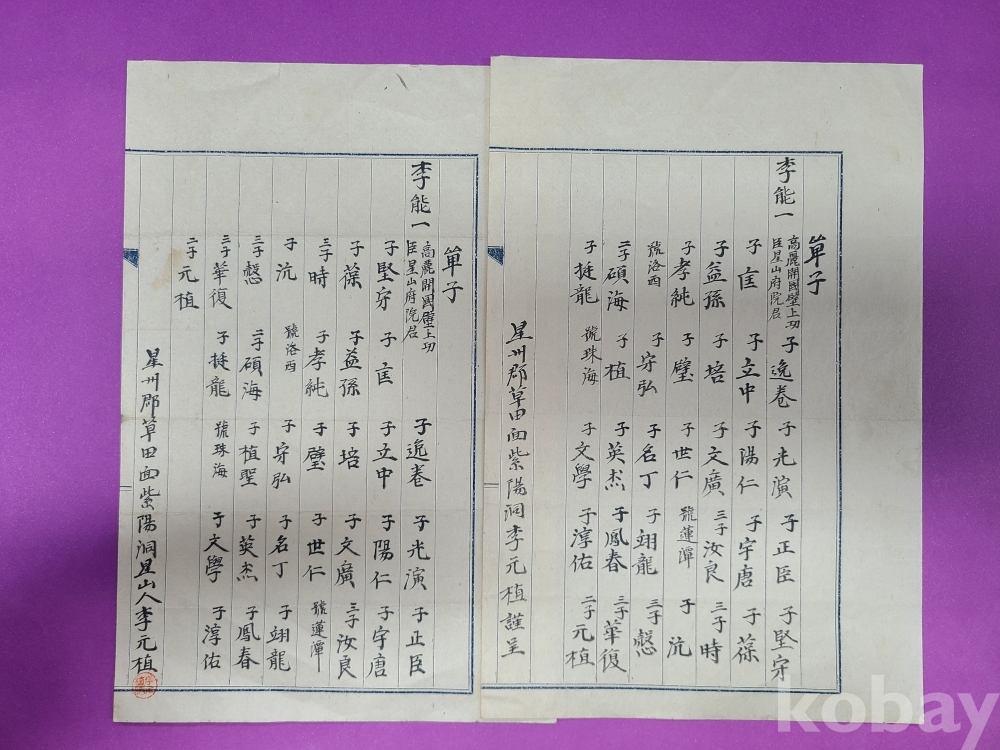 單子
李能一 高麗開國壁上功
臣星山府院君 子逸卷 子光演 子正臣 子堅守
子匡 子立中 子陽仁 子宇唐 子葆
子益孫 子培 子文廣 三子汝良 三子時
子孝純 子璧 子世仁 號蓮潭 子沆
號洛酉 子守弘 子名丁 子翊龍 三子慤
二子碩海 子植 子英杰 子鳳春 三子華復
子挺龍 號珠海 子文學 子淳佑 二子元植
星州郡草田面紫陽洞李元植謹呈
單子
李能一 高麗開國壁上功
臣星山府院君 子逸卷 子光演 子正臣
子堅守 子匡 子立中 子陽仁 子宇唐
子葆 子益孫 子培 子文廣 三子汝良
三子時 子孝純 子璧 子世仁 號蓮潭
子沆 號洛酉 子守弘 子名丁 子翊龍
三子慤 二子碩海 子植聖 子英杰 子鳳春
三子華復 子挺龍 號珠海 子文學 子淳佑
二子元植
星州郡草田面紫陽洞星山人李元植
kobay